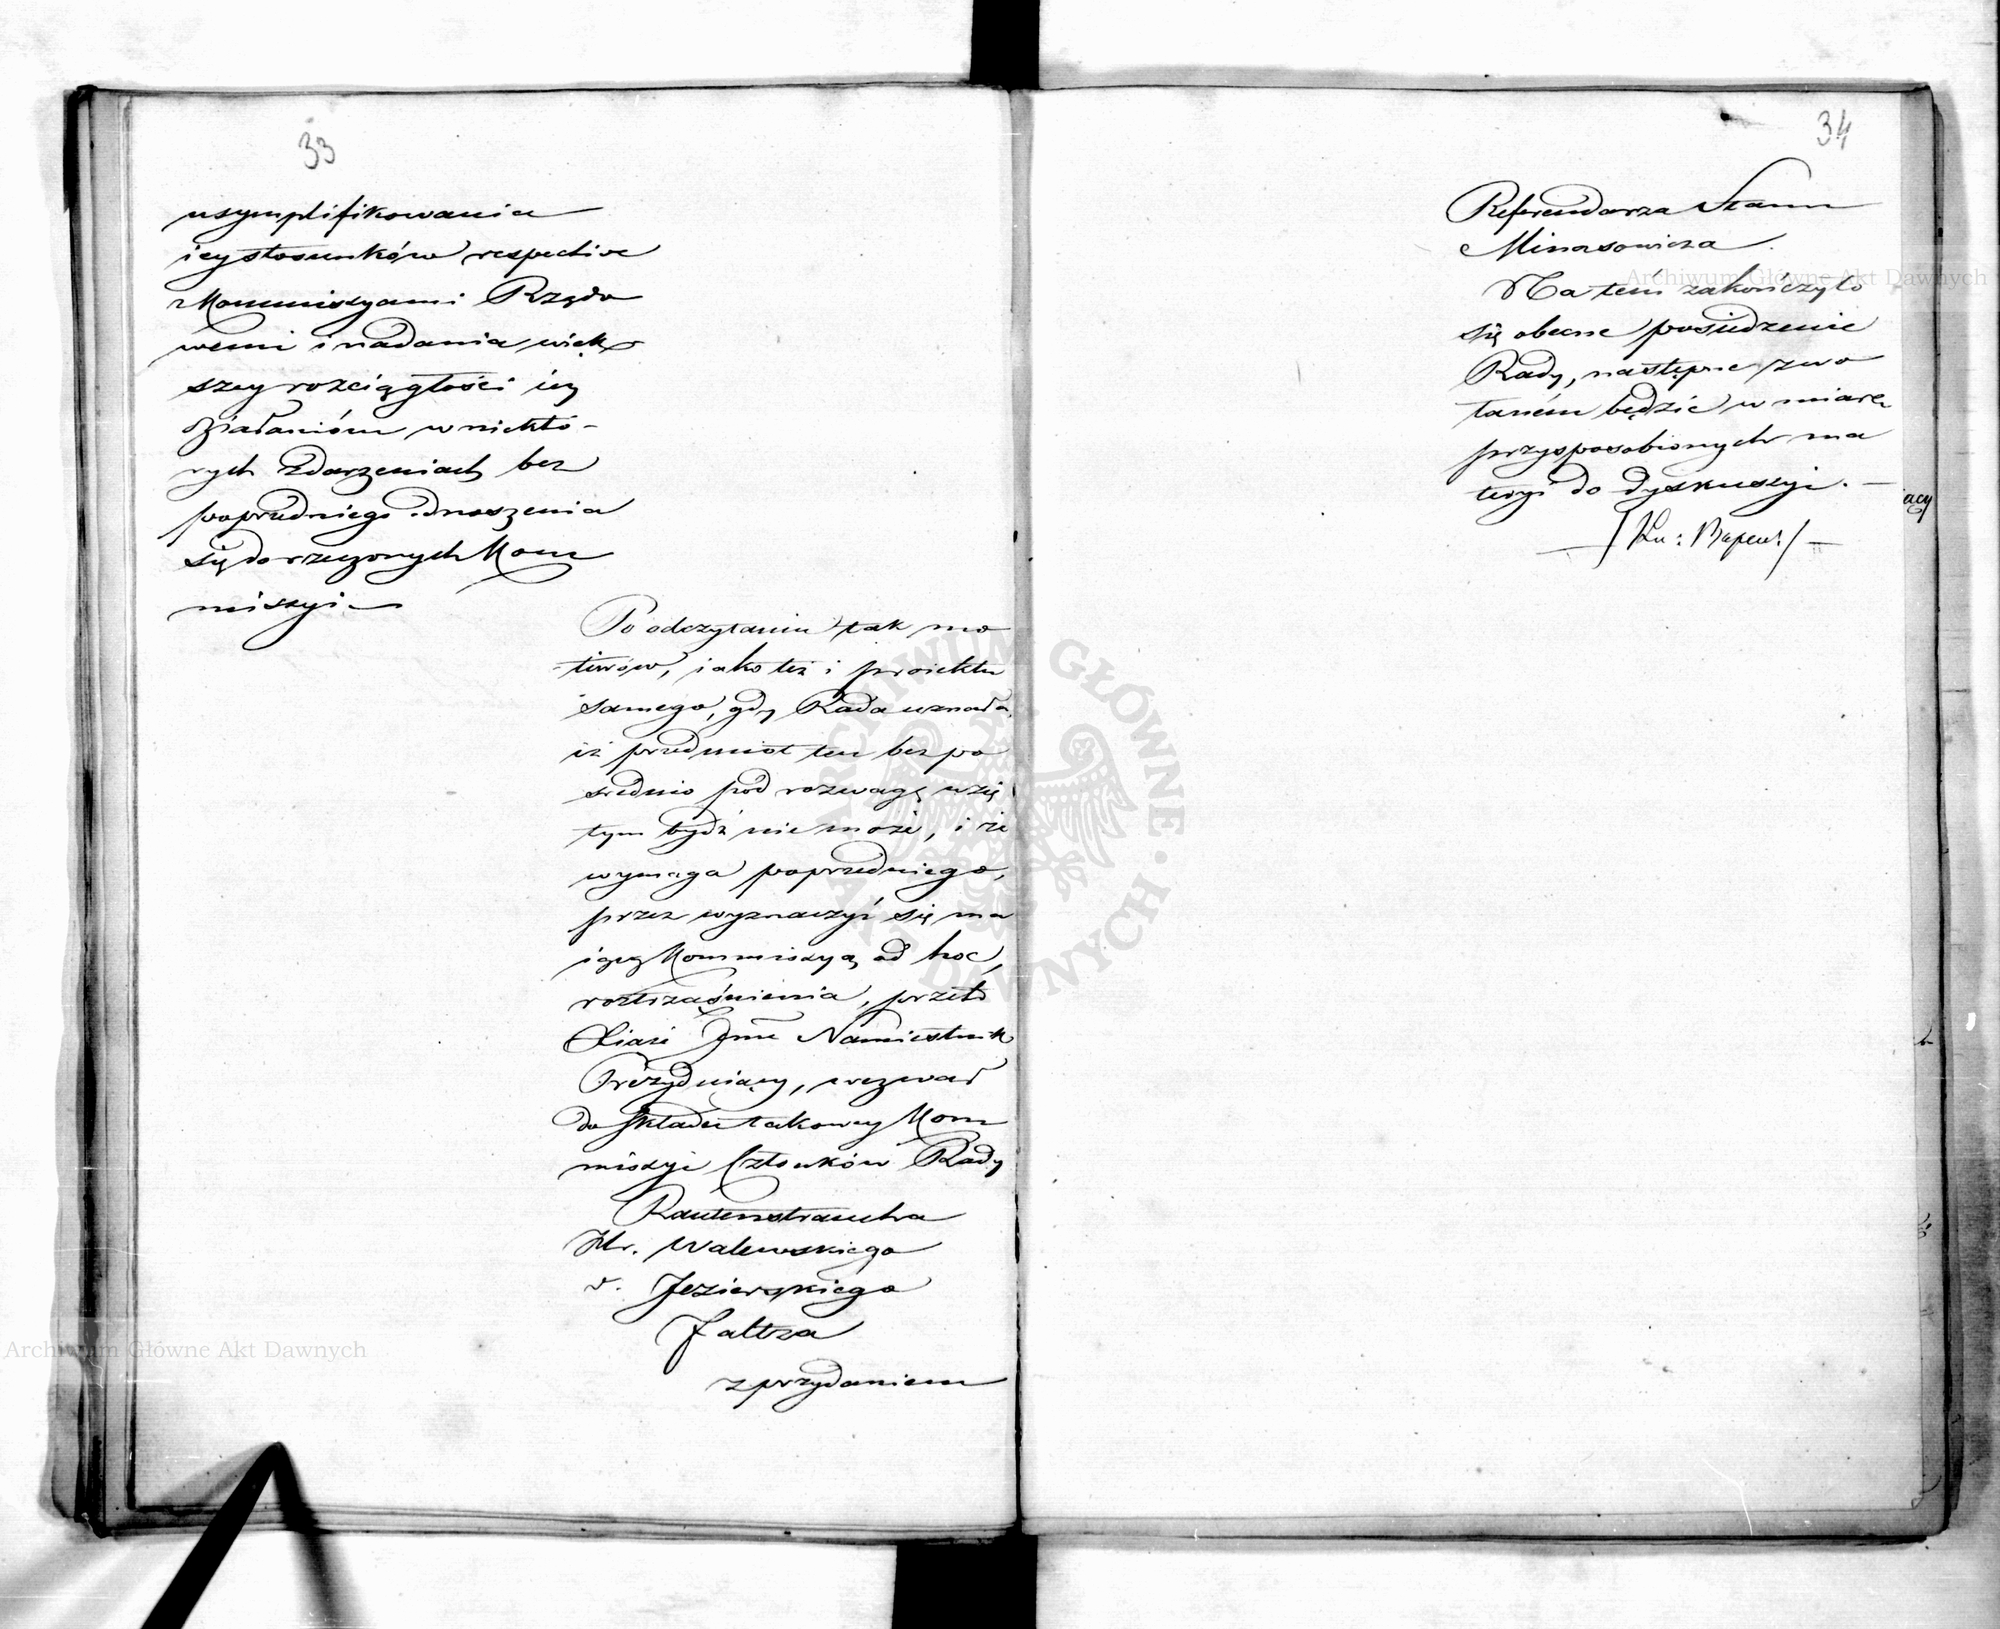 33
usymplifikowania
iey stosunków respective
z Kommissyami Rządo
wemi i nadania więk
szey rozciągłości iey
działaniom w niektó-
rych zdarzeniach bez
poprzedniego odnoszenia
się do rzeczonych Kom
missyi
Po odczytaniu tak mo
tiwów, iako też i proiektu
samego, gdy Rada uznała
iż przedmiot ten bezpo
srednio pod rozwagę wzię
tym bydź nie może, i że
wymaga poprzedniego,
przez wyznaczyć się ma
iącą Kommissyą ad hoc,
roztrząśnienia, przeto
Xiąże Jmć Namiestnik
Prezyduiący, wezwał
do składu takowey Kom
missyi Członków Rady
Rautenstraucha
Hr. Walewskiego
v. Jezierskiego
Faltza
z przydaniem
34
Referendarza Stanu
Minasowicza
Na tem zakończyło
się obecne posiedzenie
Rady, następne zwo
łaném będzie w miarę
przysposobionych ma
teryi do dyskussyi. —
acy
Archiwum Główne Akt Dawnych
Archiwum Główne Akt Dawnych
ARCHIWUM GŁÓWNE AKT DAWNYCH